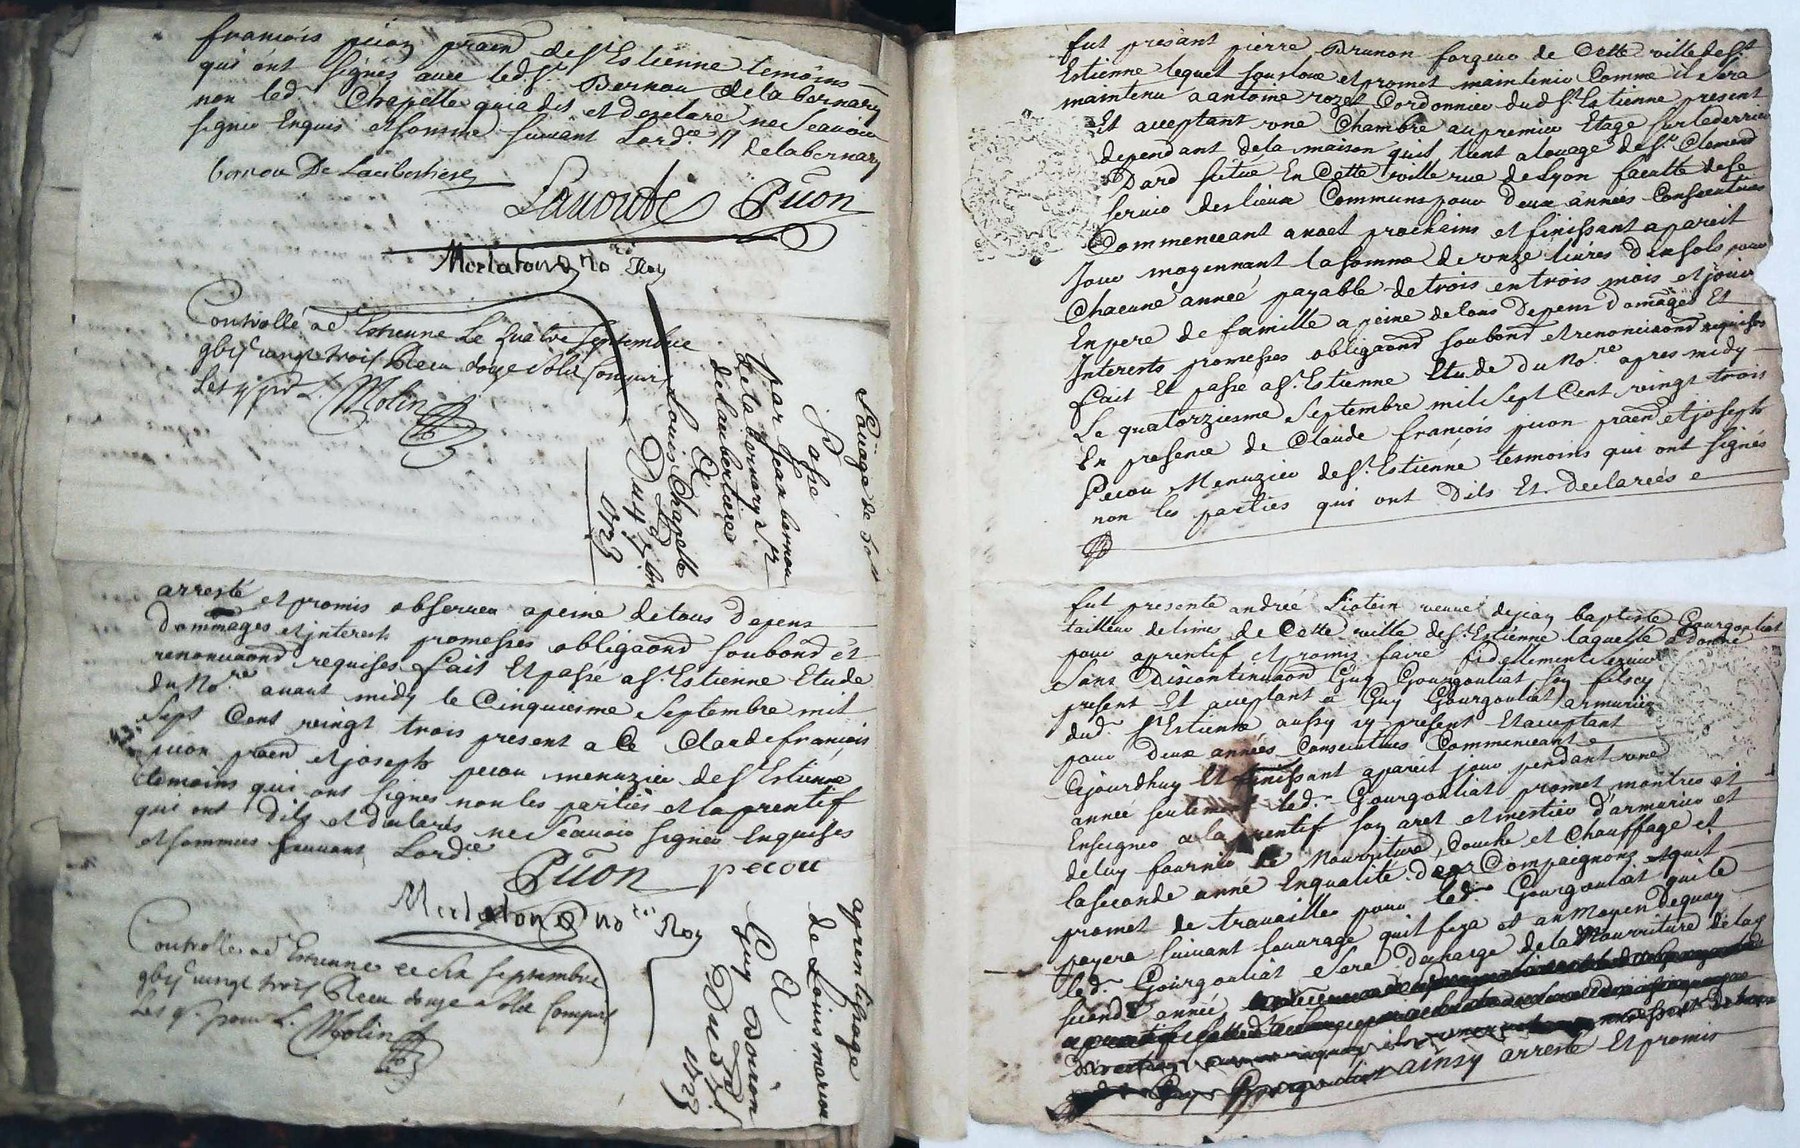 francois piion praen de St Estienne temoins
qui ont signéz avec led. Sr Bernou delabernary
non led. Chapelle quia dit et declaré ne scavoir
signer Enquis et sommé suivant Lord.ce // delabernary
bernou De
Piion
Merlaton no.re Roy
Controllé a St Estienne Le quatre septembre
vingt trois Receu douze sols
Molin
Louage de
Passé
par Jean bernou
de labernary Sr
A
Louis Chapelle
Du 4 7.bre
1723
arresté et promis observer apeine detous depens
Dommages et interests promesses obligaond soubond et
renonciaond requises fait Et passé a St Estienne Etude
du No.re avant midy le Cinquiesme Septembre mil
sept Cent vingt trois present a Ce Claude francois
piion praen et joseph pecou menuzier de St Estienne
temoins qui ont signes non les parties et laprentif
qui ont dits et declarés ne scavoir signer Enquises
et sommes suivant Lord.ce
Piion pecou
Merlaton no.re Roy
Controllé a St Estienne le six septembre
vingt trois Receu douze sols
Molin
aprentissage
de Louis marion
A
Guy
Du 5 7.bre
1723
fut présant pierre Brunon forgeur de Cette ville de St
Estienne lequel souslove et promet maintenir Comme il sera
maintenu a antoine rozet Cordonnier dud St Estienne present
Et acceptant une Chambre au premier Etage sur lederrier
dependant dela maison quil tient a louage de Sr Clement
Dard scitué En Cette ville rue de Lyon faculté de se
servir des lieux Communs pour deux années Consecutives
Commenceant a noel prochains et finissant a pareil
Jour moyennant la somme de onze livres dix sols pour
Chacune année payable de trois en trois mois et jouir
En pere de famille a peine de tous Depens domages Et
Interests promesses obligaond soubond et renonciaond requises
fait Et passé a St Estienne Etude du No.re apres midy
Le quatorziesme Septembre mil sept Cent vingt trois
En presence de Claude francois piion praen et joseph
Pecou Menuzier de St Estienne tesmoins qui ont signés
non les parties qui ont dits Et declarées
fut presente andrée Liotein veuve de jean baptiste Gourgouliat
tailleur de limes de Cette ville de St Estienne laquelle a donné
pour aprentif et promis faire fidellement servir
Sans Discontinuaon Guy Gourgouliat son fils cy
present Et acceptant a Guy Gourgouliat armurier
dud. St Estienne aussy cy present Et acceptant
pour deux années Consecutives Commenceant
Cejourdhuy Et finissant apareil jour pendant une
année seulement led. Gourgouliat promet montrer et
Enseigner a laprentif son aret et mestier d'armurier et
de luy fournir la Nourriture, Couche et Chauffage et
la seconde année Enqualité de Compaignons et quil
promet de travailler pour led. Gourgouliat qui le
payera suivant louvrage quil fera et au Moyen dequoy
led. Gourgouliat sera Decharge dela Nourriture de la
seconde année
ainsy arresté Et promis